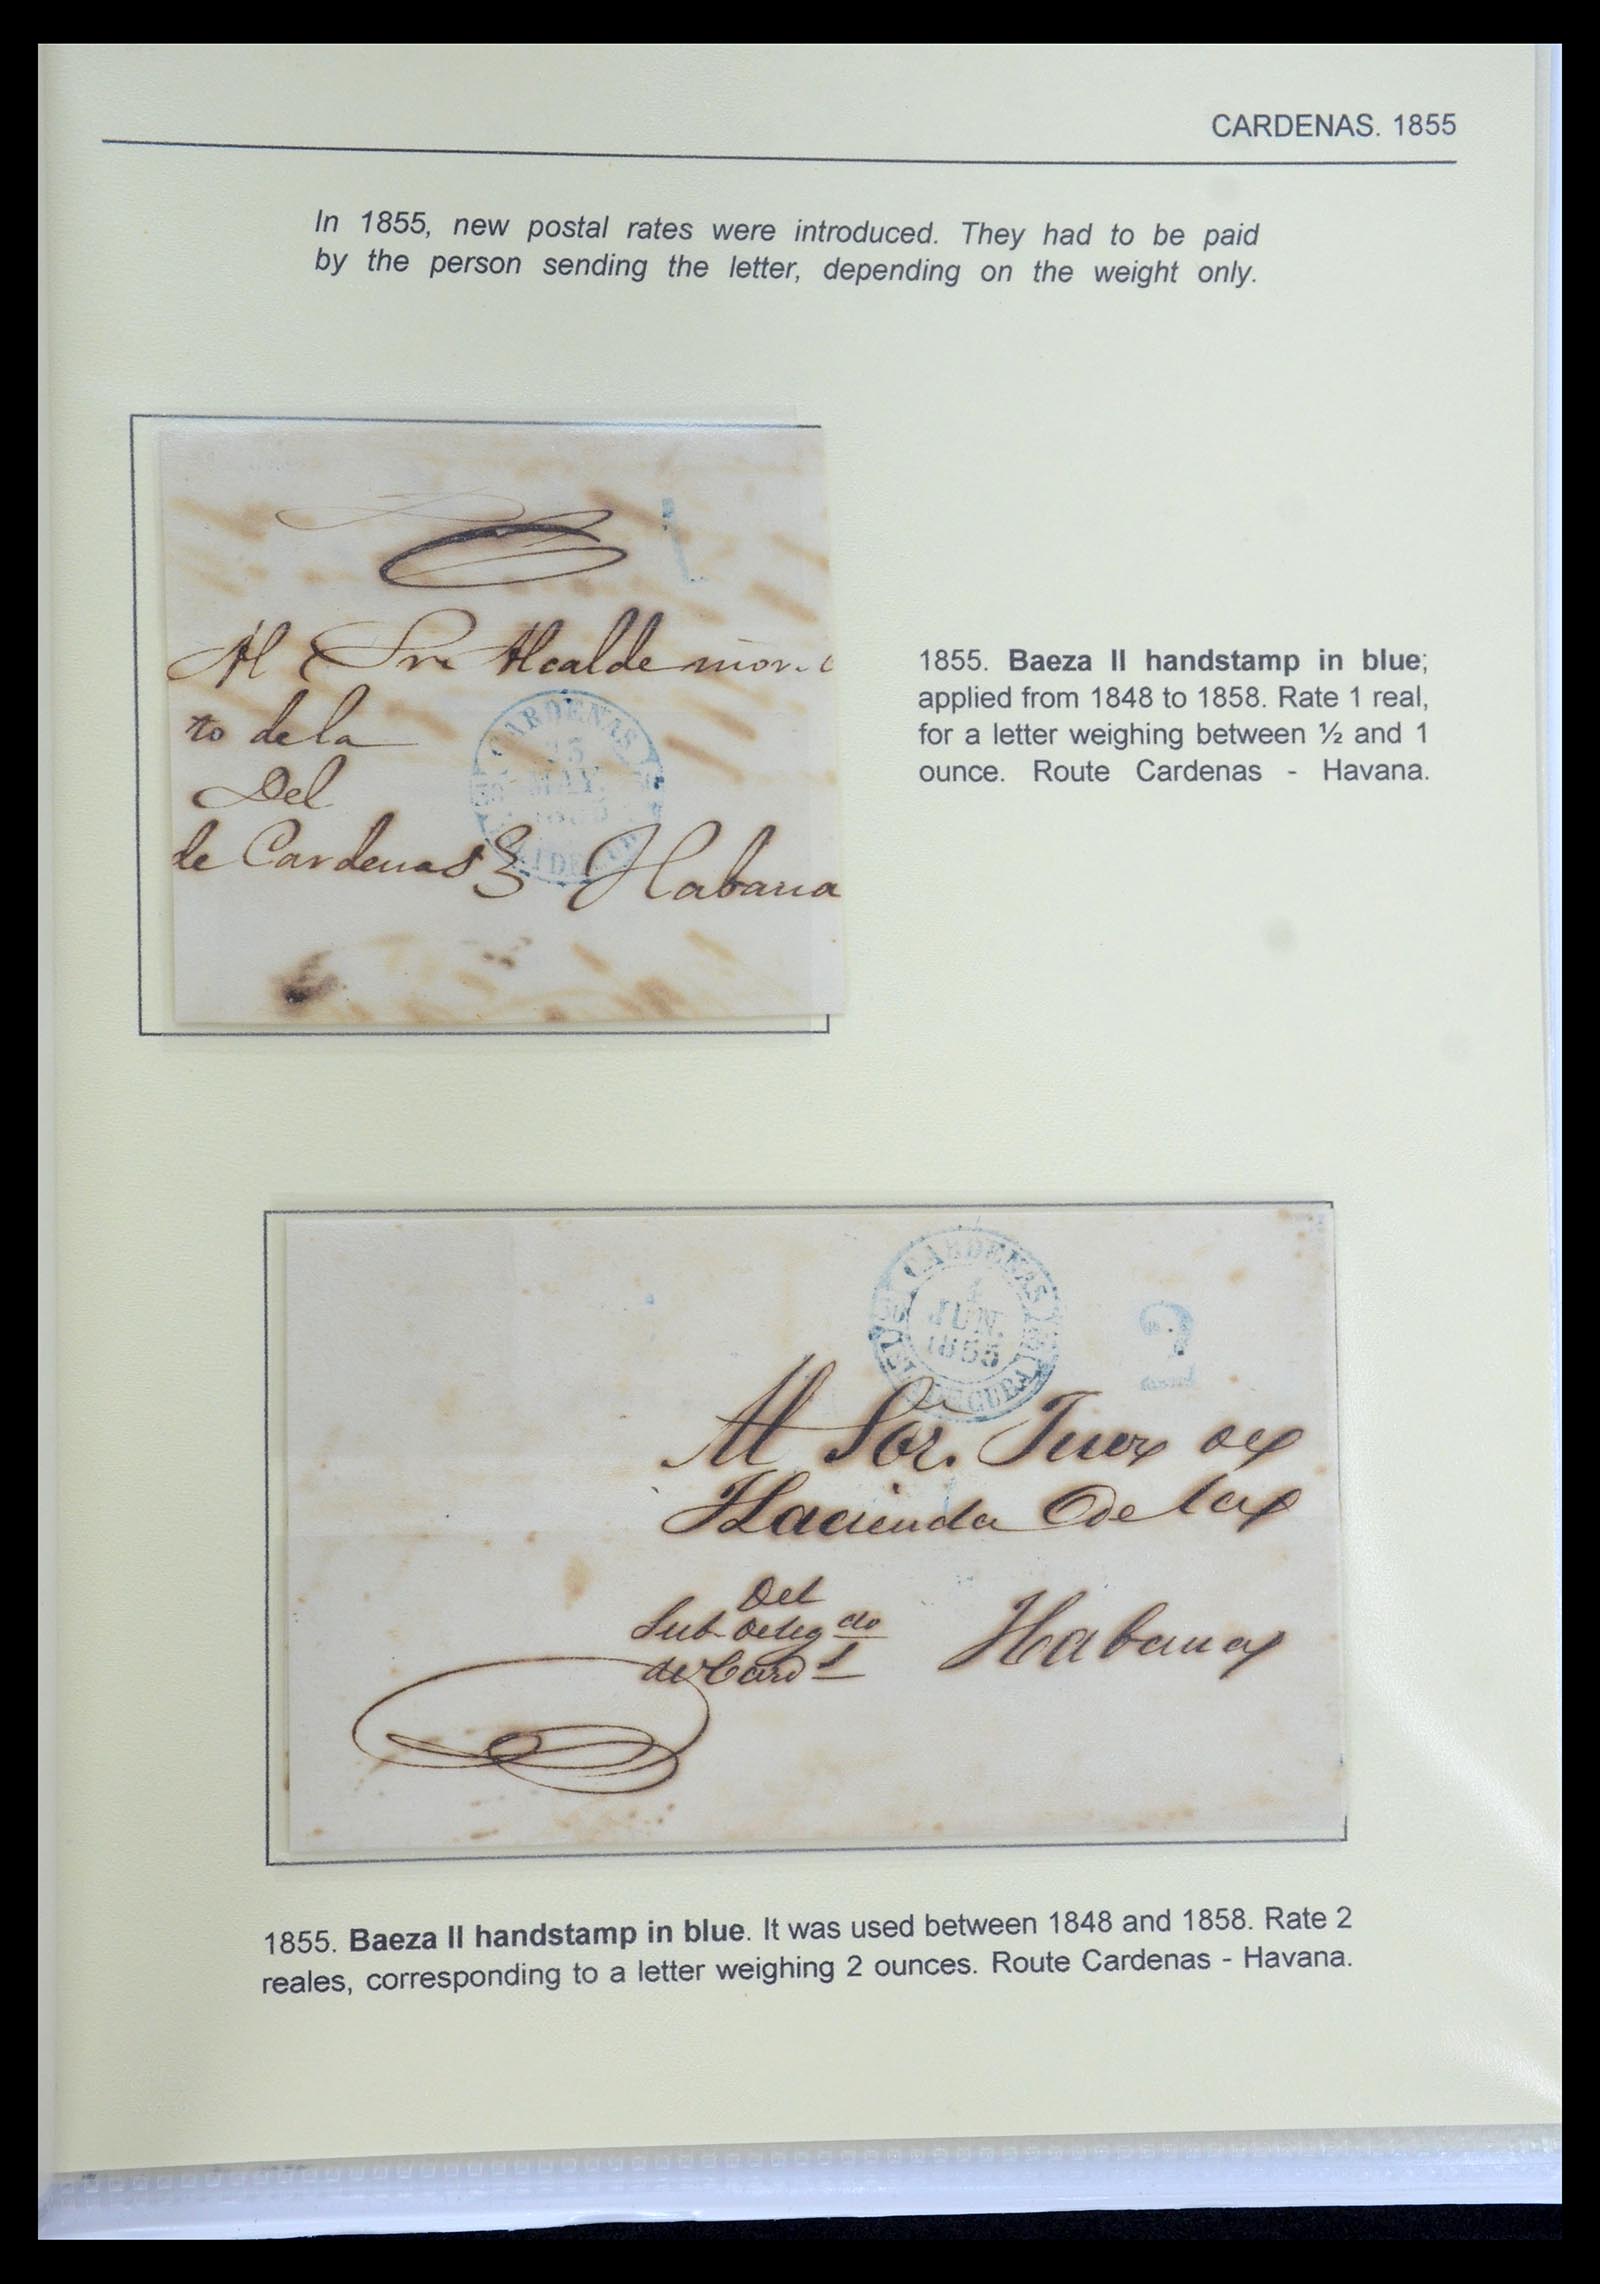 CARDENAS. 1855
In 1855, new postal rates were introduced. They had to be paid
by the person sending the letter, depending on the weight only.
Al Sor Alcalde mor.
to de la
Del
de Cardenas Habana
CARDENAS
25
MAY.
1855
1855. Baeza II handstamp in blue;
applied from 1848 to 1858. Rate 1 real,
for a letter weighing between ½ and 1
ounce. Route Cardenas - Havana.
CARDENAS
JUN.
1855
DE CUBA
2
Al Sor. Juez de
Hacienda de la
Del
Sub deleg do
de Card s
Habana
1855. Baeza II handstamp in blue. It was used between 1848 and 1858. Rate 2
reales, corresponding to a letter weighing 2 ounces. Route Cardenas - Havana.